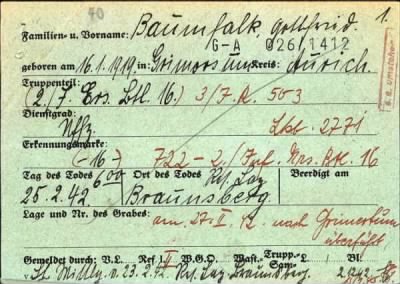 70
1.
Familien- u. Vorname: Baumfalk, Gottfried.
G-A 026/1412
geboren am 16.1.1919. in Grimersum Kreis: Aurich.
Truppenteil:
(2./J. Ers. Btl. 16.) 3/J.R. 503
Dienstgrad:
Uffz. Lkb. 2771
Erkennungsmarke:
(-16-) 722 - 2./Inf. Ers. Btl. 16
Tag des Todes 6.00 Ort des Todes Res. Laz. Beerdigt am
25.2.42 Braunsberg
Lage und Nr. des Grabes: am 27.II.42. nach Grimersum
überführt
Gemeldet durch: V.L. Ref. II W.G.O. Wast.- Trupp.- Sam.- L. Bl.
v. 23.2.42. Res. Laz. Braunsberg